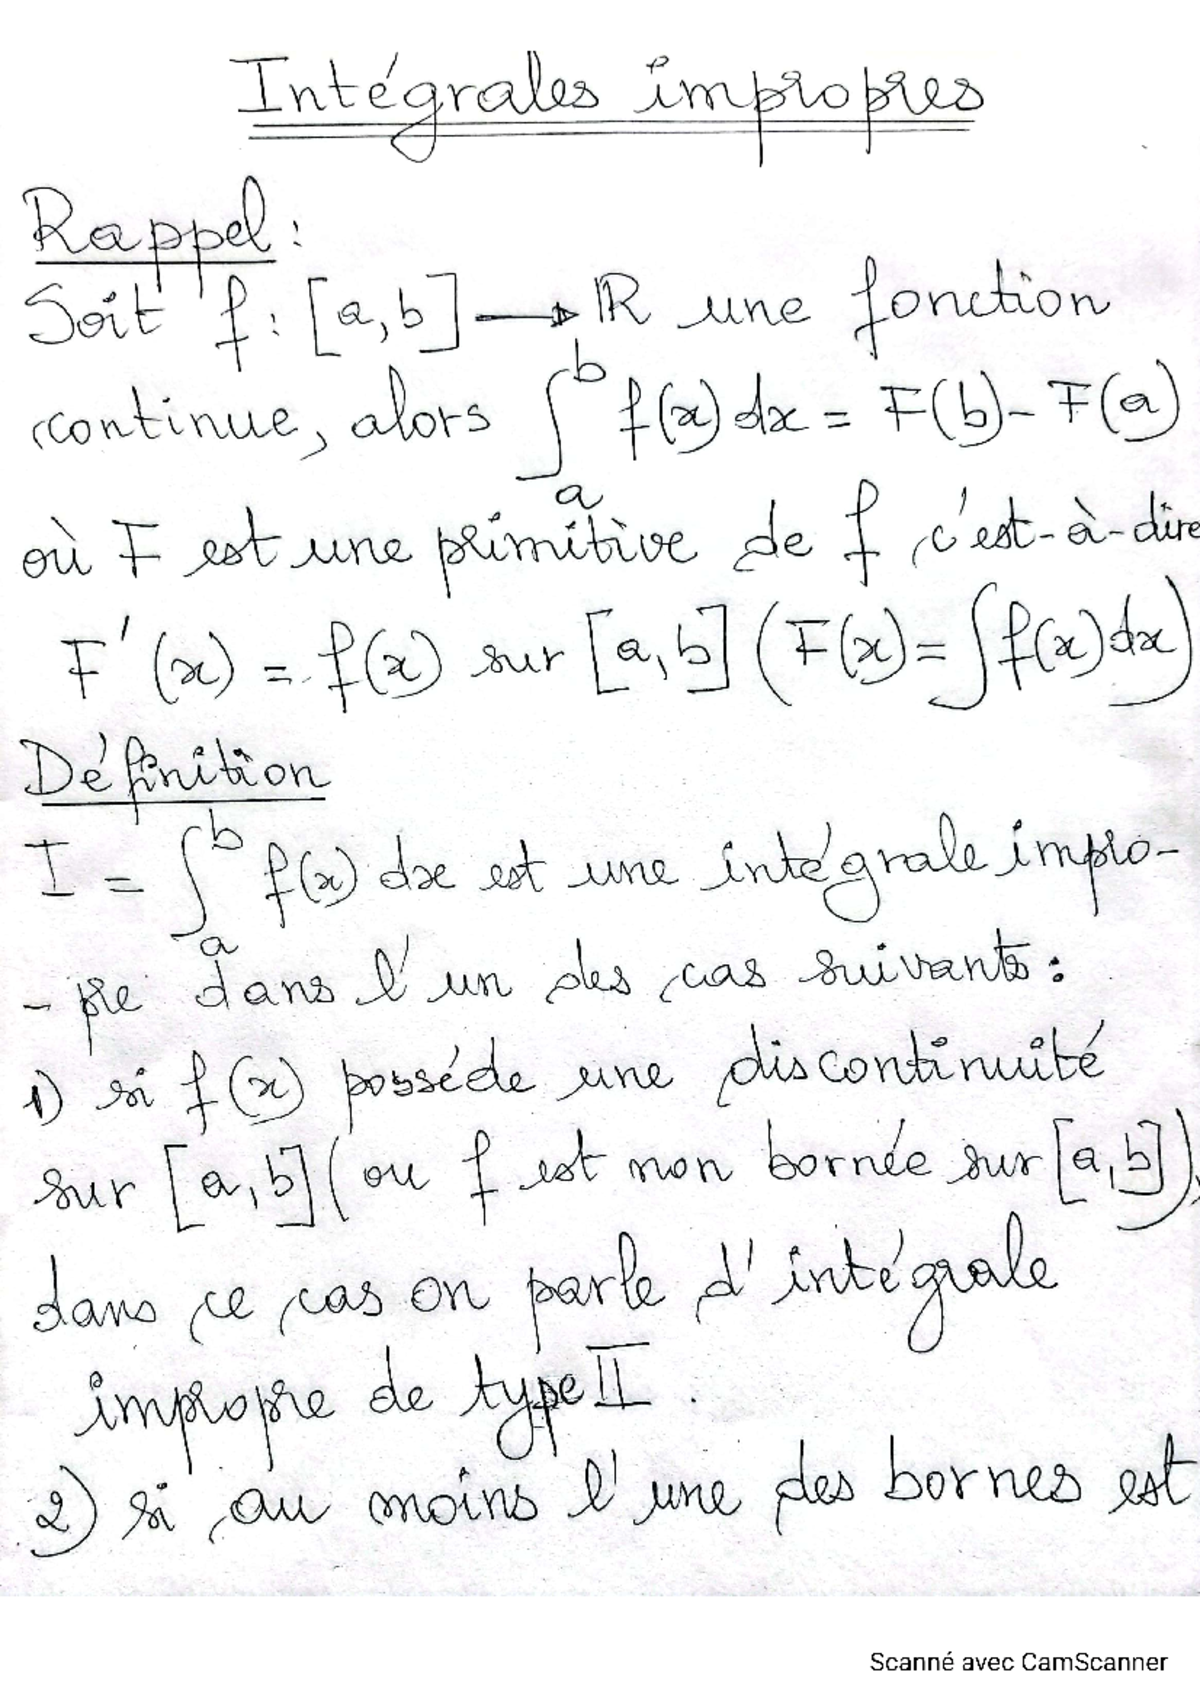 Intégrales impropres
Rappel :
Soit f : [a,b] → ℝ une fonction
continue, alors ∫_a^b f(x) dx = F(b) - F(a)
où F est une primitive de f c'est-à-dire
F'(x) = f(x) sur [a,b] (F(x) = ∫ f(x) dx)
Définition
I = ∫_a^b f(x) dx est une intégrale impro-
- pre dans l'un des cas suivants :
1) si f(x) posséde une discontinuité
sur [a,b] (ou f est non bornée sur [a,b]),
dans ce cas on parle d'intégrale
impropre de type II .
2) si au moins l'une des bornes est
Scanné avec CamScanner